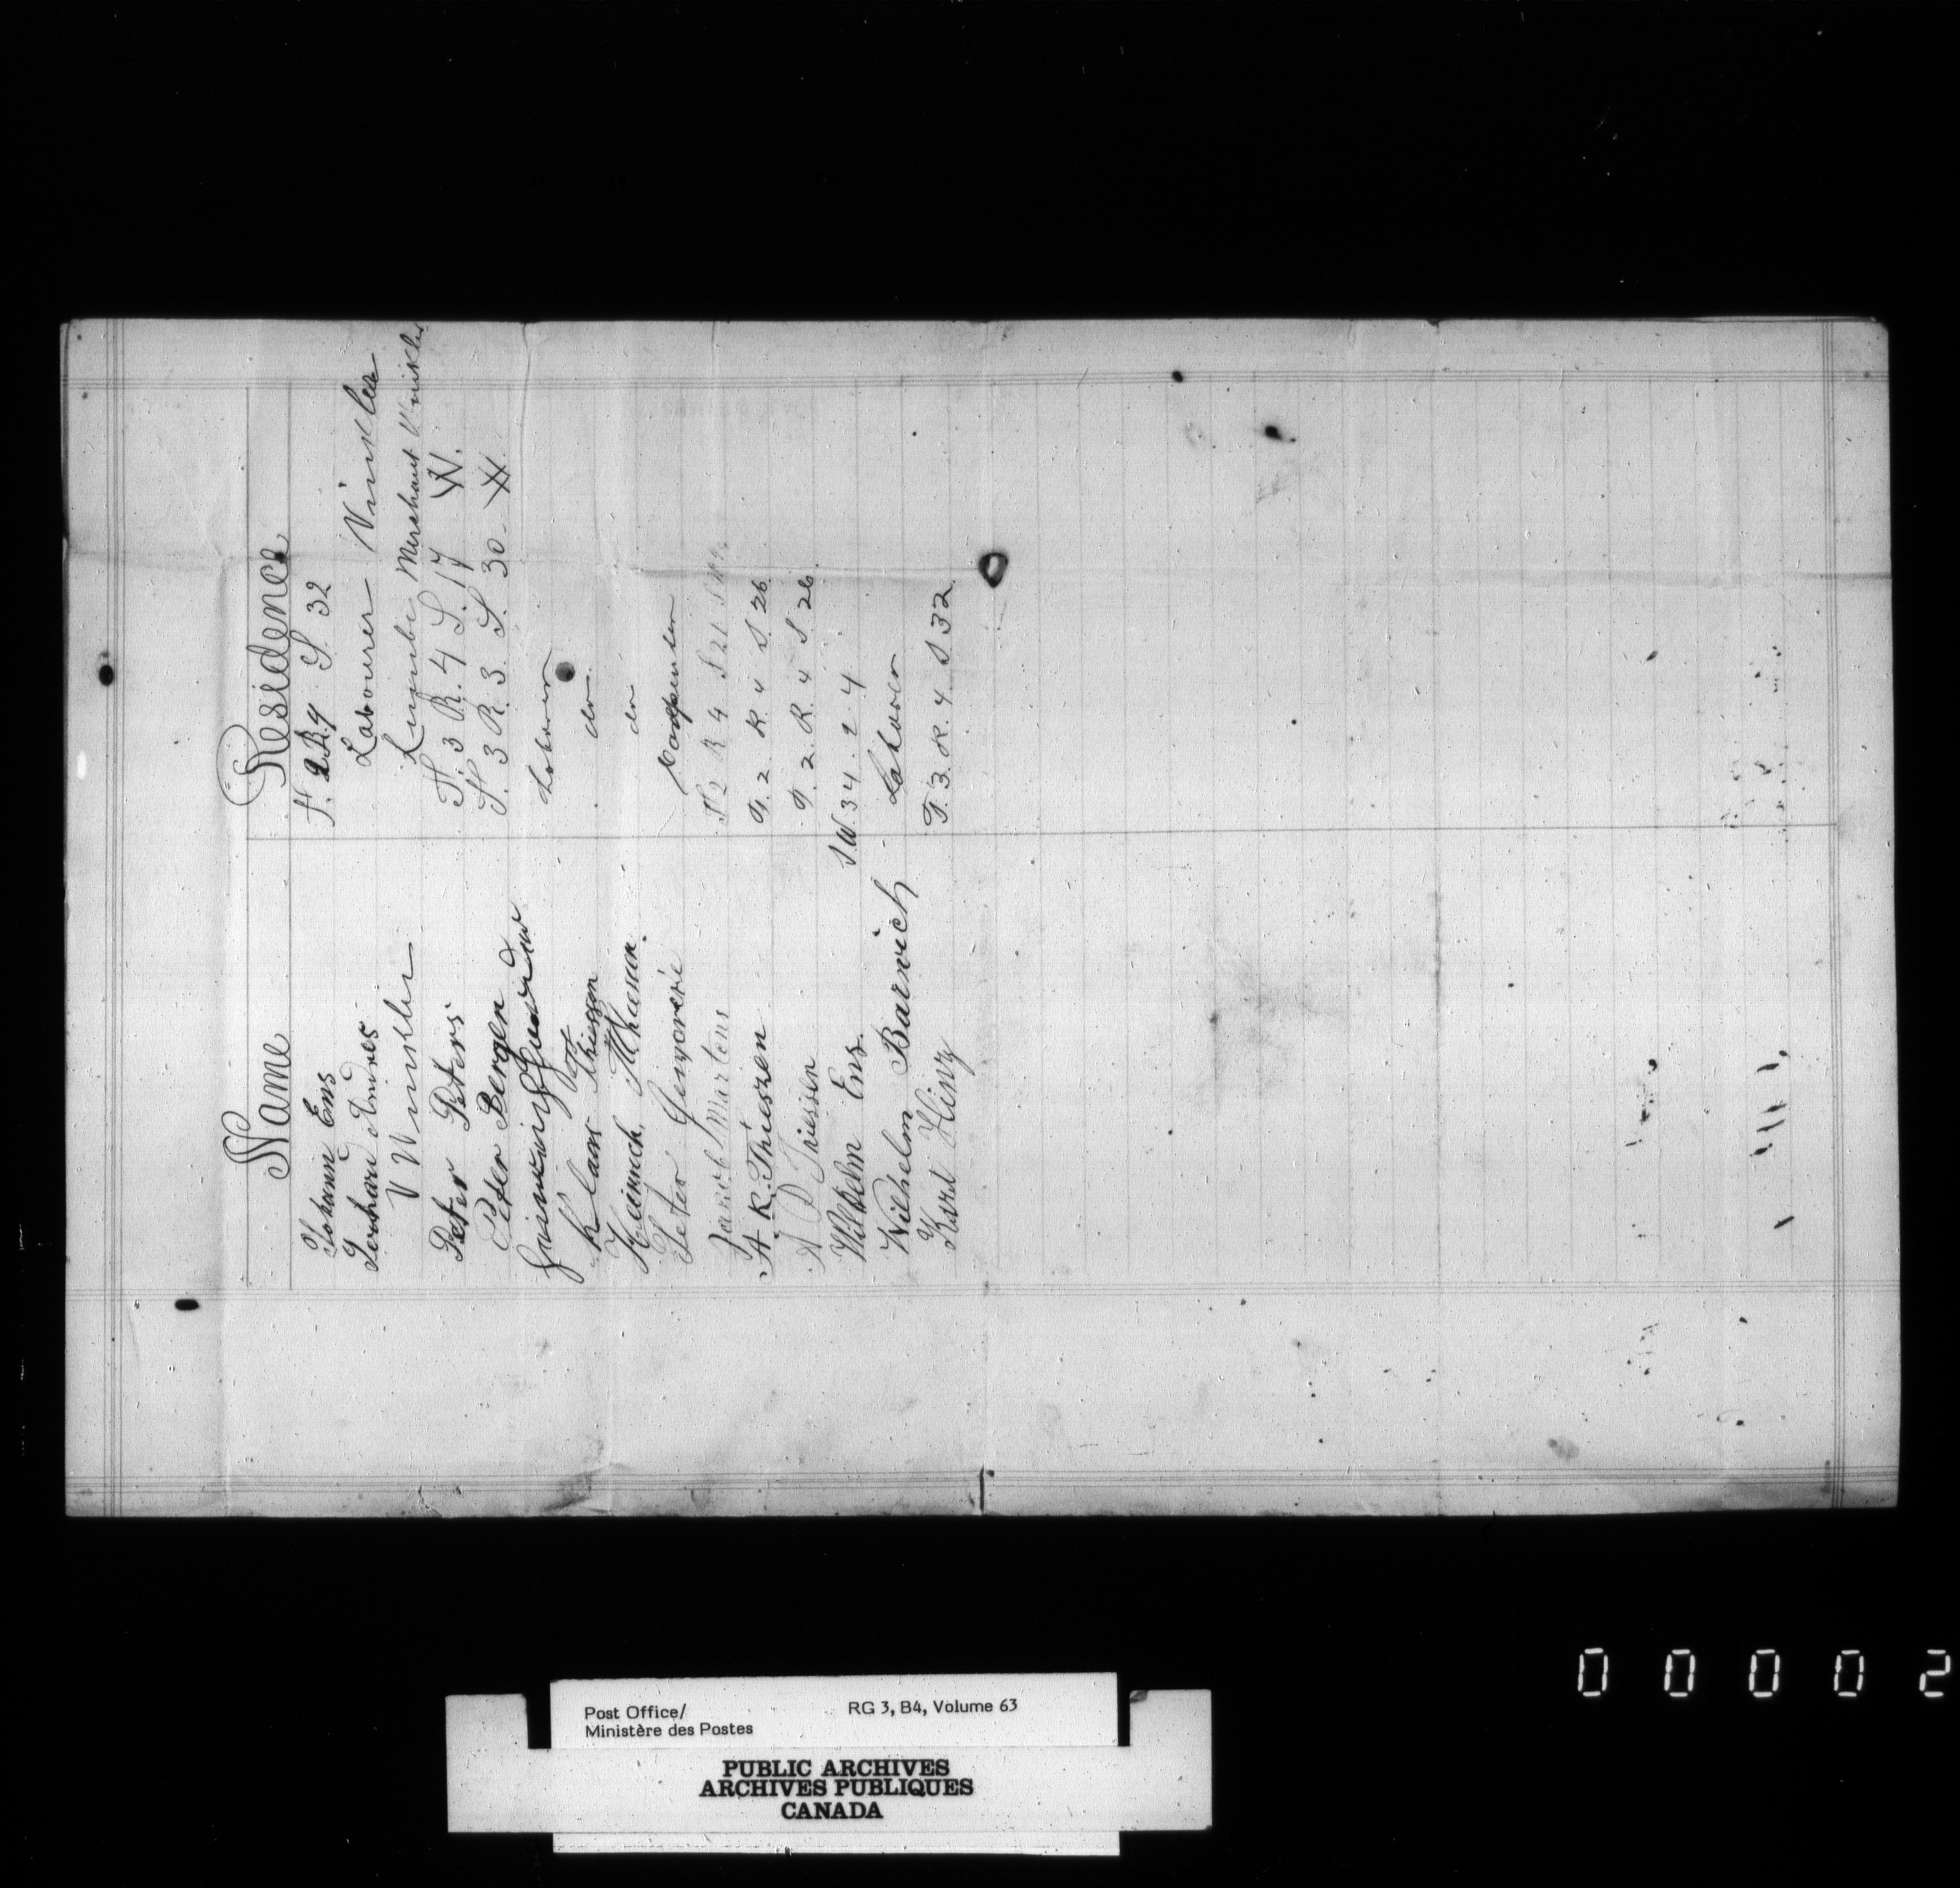 Name Residence
Johann Ens T. 2 R. 4 S. 32
Gerhard Andres Labourer Winkler
V Winkler Lumber Merchant Winkler
Peter Peters T. 3 R. 4 S. 17 W.
Peter Bergen T. 3 R. 3 S. 30 W
Labourer
Klaas Thiessen do
Heinrich Thiessen. do
Peter Carpenter
Jakob Martens T 2 R 4 S 21
H. K. Thieszen T. 2 R. 4 S. 26
A D Thiessen T. 2. R. 4 S 26.
Wilhelm Ens. S.W. 34. 2 4
Wilhelm Barwich Labourer
Karl Hinz T. 3. R. 4. S 32
00002
Post Office/ RG 3, B4, Volume 63
Ministère des Postes
PUBLIC ARCHIVES
ARCHIVES PUBLIQUES
CANADA